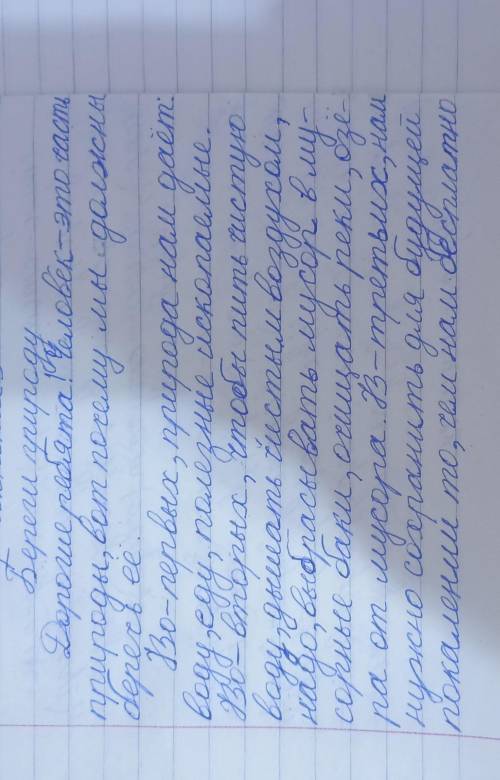 Береги природу
Дорогие ребята! Человек-это часть
природы, вот почему мы должны
беречь её.
Во-первых, природа нам даёт:
воду, еду, полезные ископаемые.
Во-вторых, чтобы пить чистую
воду, дышать чистым воздухом,
надо, выбрасывать мусор в му-
сорные баки, очищать реки, озё-
ра от мусора. В-третьих, нам
нужно сохранить для будущей
покалений то, чем нам бесплатно